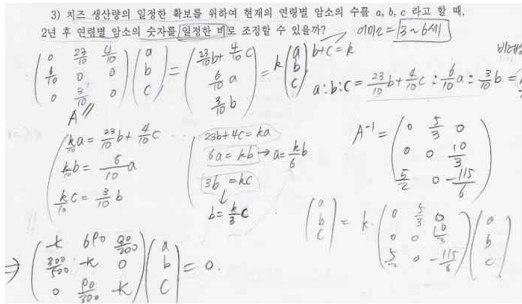 3) 치즈 생산량의 일정한 확보를 위하여 현재의 연령별 암소의 수를 a, b, c 라고 할 때,
2년 후 연령별 암소의 숫자를 일정한 비로 조정할 수 있을까?
3~6세
(0 23/10 4/10; 6/10 0 0; 0 3/10 0)(a; b; c) = (23/10 b + 4/10 c; 6/10 a; 3/10 b) = k(a; b; c)
b+c=k
a:b:c = 23/10 b + 4/10 c : 6/10 a : 3/10 b =
A
k/10 a = 23/10 b + 4/10 c
k/10 b = 6/10 a
k/10 c = 3/10 b
23b+4c=ka
6a=kb → a=k/6 b
3b=kc
b=k/3 c
A⁻¹ = (0 5/3 0; 0 0 10/3; 5/2 0 -115/6)
(a; b; c) = k·(0 5/3 0; 0 0 10/3; 5/2 0 -115/6)(a; b; c)
(a; b; c) = 0.